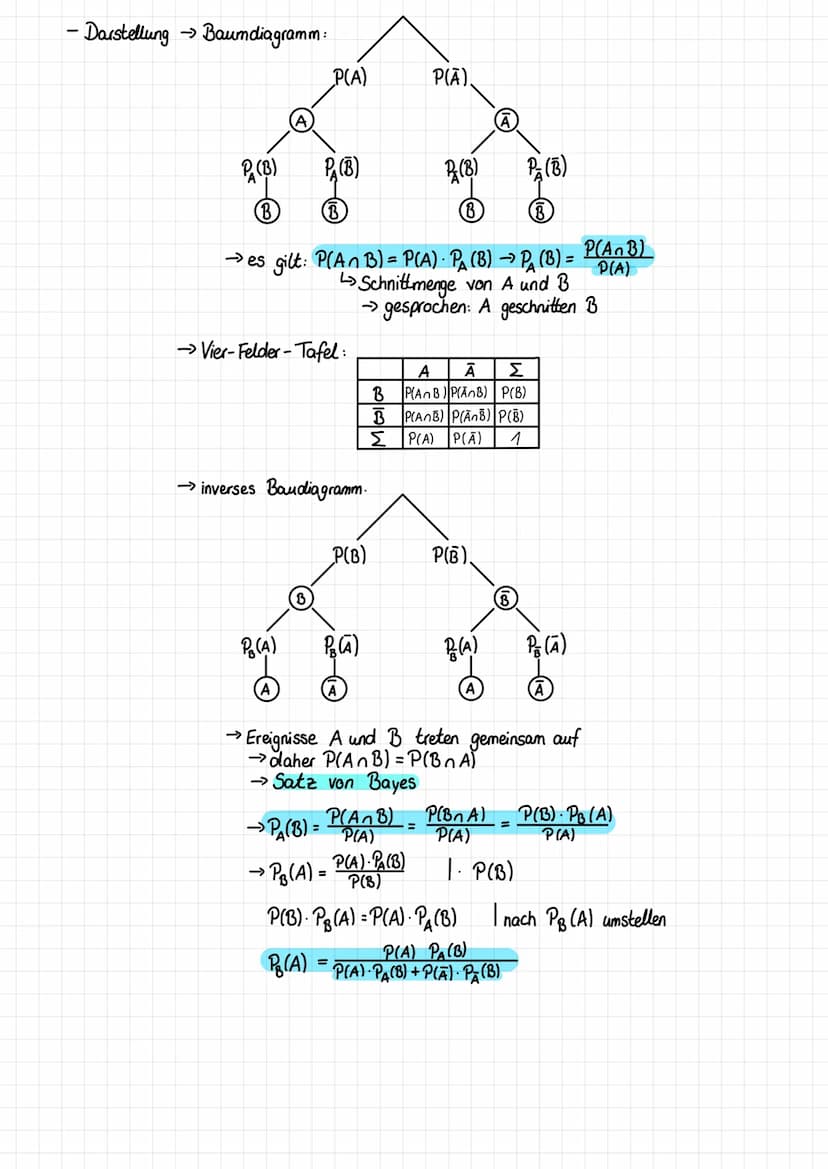 - Darstellung → Baumdiagramm:
P(A) P(Ā)
A Ā
P_A(B) P_A(B̄) P_Ā(B) P_Ā(B̄)
B B̄ B B̄
→ es gilt: P(A∩B) = P(A) · P_A(B) → P_A(B) = P(A∩B) / P(A)
↳ Schnittmenge von A und B
→ gesprochen: A geschnitten B
→ Vier-Felder-Tafel:
A Ā Σ
B P(A∩B) P(Ā∩B) P(B)
B̄ P(A∩B̄) P(Ā∩B̄) P(B̄)
Σ P(A) P(Ā) 1
→ inverses Baudiagramm.
P(B) P(B̄)
B B̄
P_B(A) P_B(Ā) P_B̄(A) P_B̄(Ā)
A Ā A Ā
→ Ereignisse A und B treten gemeinsam auf
→ daher P(A∩B) = P(B∩A)
→ Satz von Bayes
→ P_A(B) = P(A∩B) / P(A) = P(B∩A) / P(A) = P(B) · P_B(A) / P(A)
→ P_B(A) = P(A) · P_A(B) / P(B) | · P(B)
P(B) · P_B(A) = P(A) · P_A(B) | nach P_B(A) umstellen
P_B(A) = P(A) P_A(B) / P(A) · P_A(B) + P(Ā) · P_Ā(B)